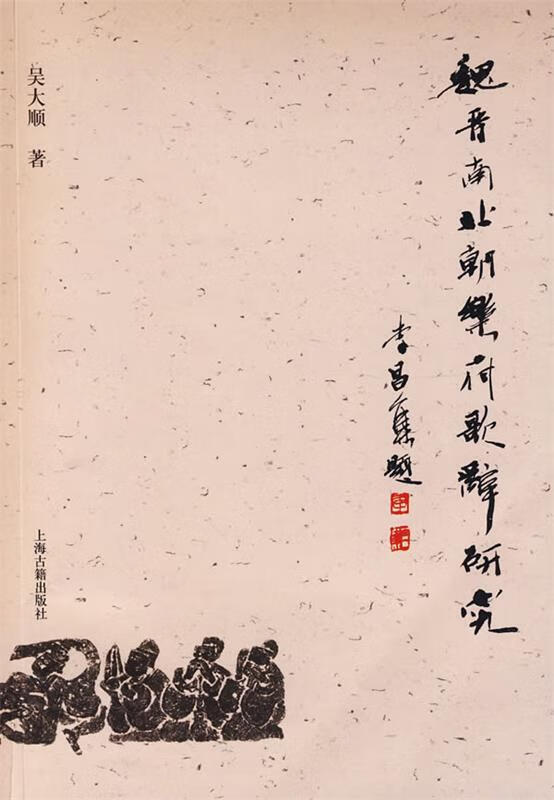 魏晋南北朝樂府歌辭研究
李昌集題
吴大顺 著
上海古籍出版社